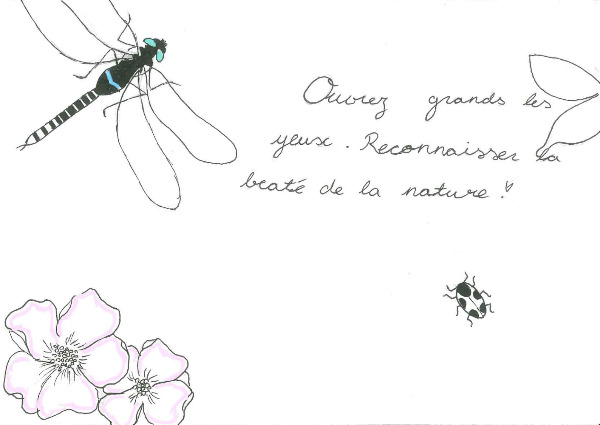 Ouvrez grands les
yeux. Reconnaisser la
beaté de la nature !